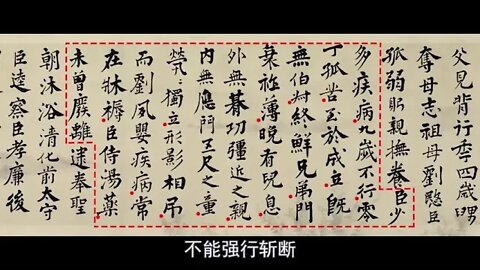 父見背行年四歲舅
奪母志祖母劉愍臣
孤弱躬親撫養臣少
多疾病九歲不行零
丁孤苦至於成立既
無伯叔終鮮兄弟門
衰祚薄晚有兒息
外無朞功彊近之親
內無應門五尺之童
煢〻獨立形影相弔
而劉夙嬰疾病常
在牀褥臣侍湯藥
未曾廢離逮奉聖
朝沐浴清化前太守
臣逵察臣孝廉後
不能强行斩断